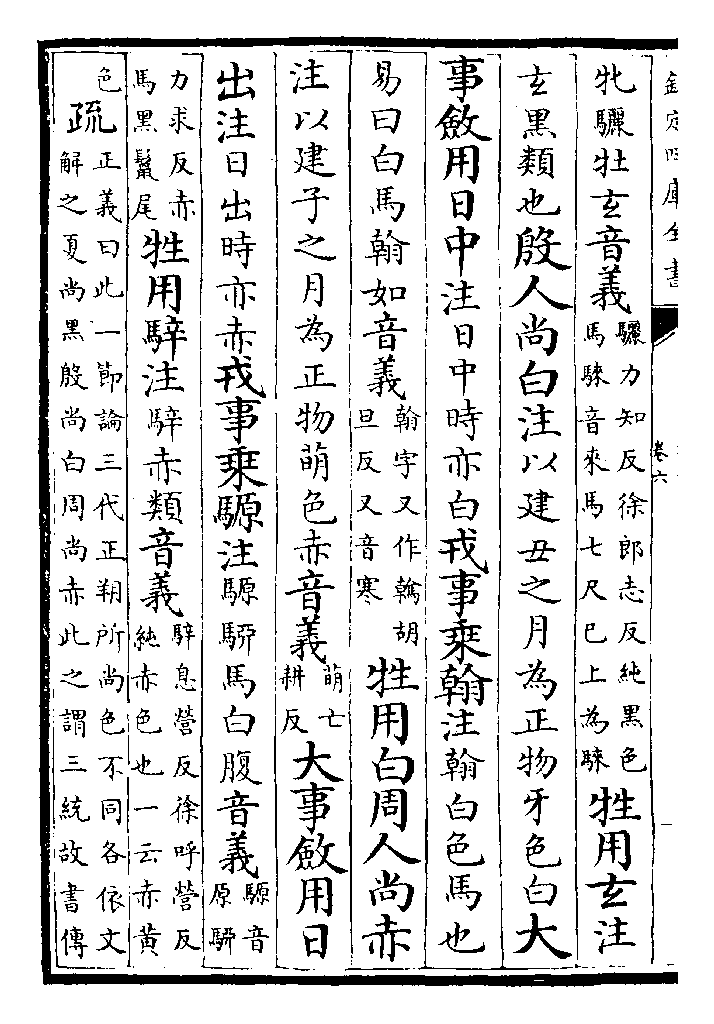 欽定四庫全書
卷六
牝驪牡玄音義驪力知反徐郎志反純黑色馬騋音來馬七尺巳上為騋牲用玄注
玄黑類也殷人尚白注以建丑之月為正物牙色白大
事斂用日中注日中時亦白戎事乗翰注翰白色馬也
易曰白馬翰如音義翰字又作鶾胡旦反又音寒牲用白周人尚赤
注以建子之月為正物萌色赤音義萌亡耕反大事斂用日
出注日出時亦赤戎事乗騵注騵駵馬白腹音義騵音原駵
力求反赤馬黑鬣尾牲用騂注騂赤類音義騂息營反徐呼營反純赤色也一云赤黄
色疏正義曰此一節論三代正朔所尚色不同各依文解之夏尚黑殷尚白周尚赤此之謂三統故書傳